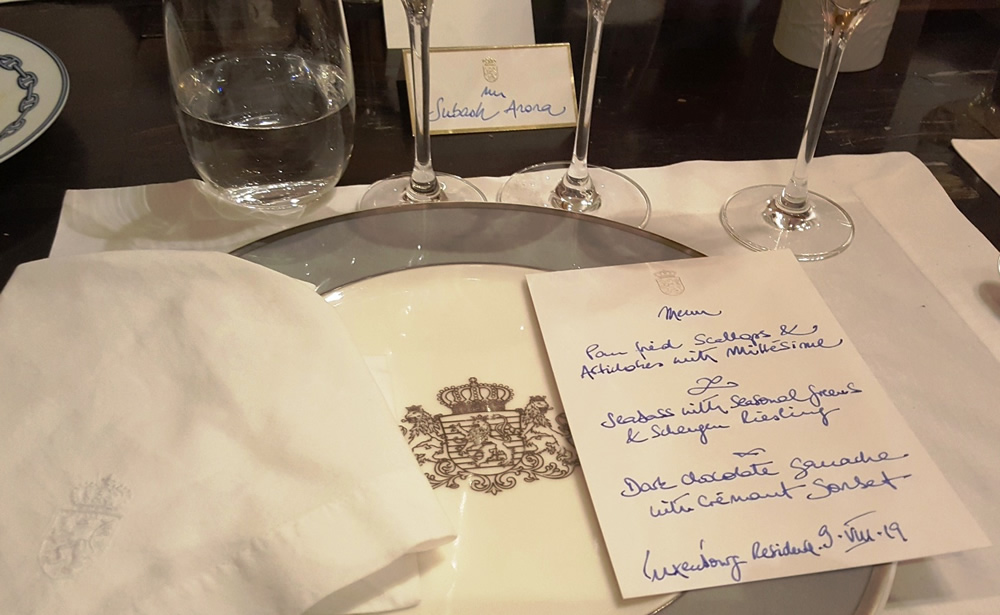 Mr
Subash Arora
Menu
Pan fried Scallops &
Artichokes with Millésime
Seabass with Seasonal Greens
& Schengen Riesling
Dark chocolate ganache
with Crémant Sorbet
Luxembourg Residence 9.VIII.19